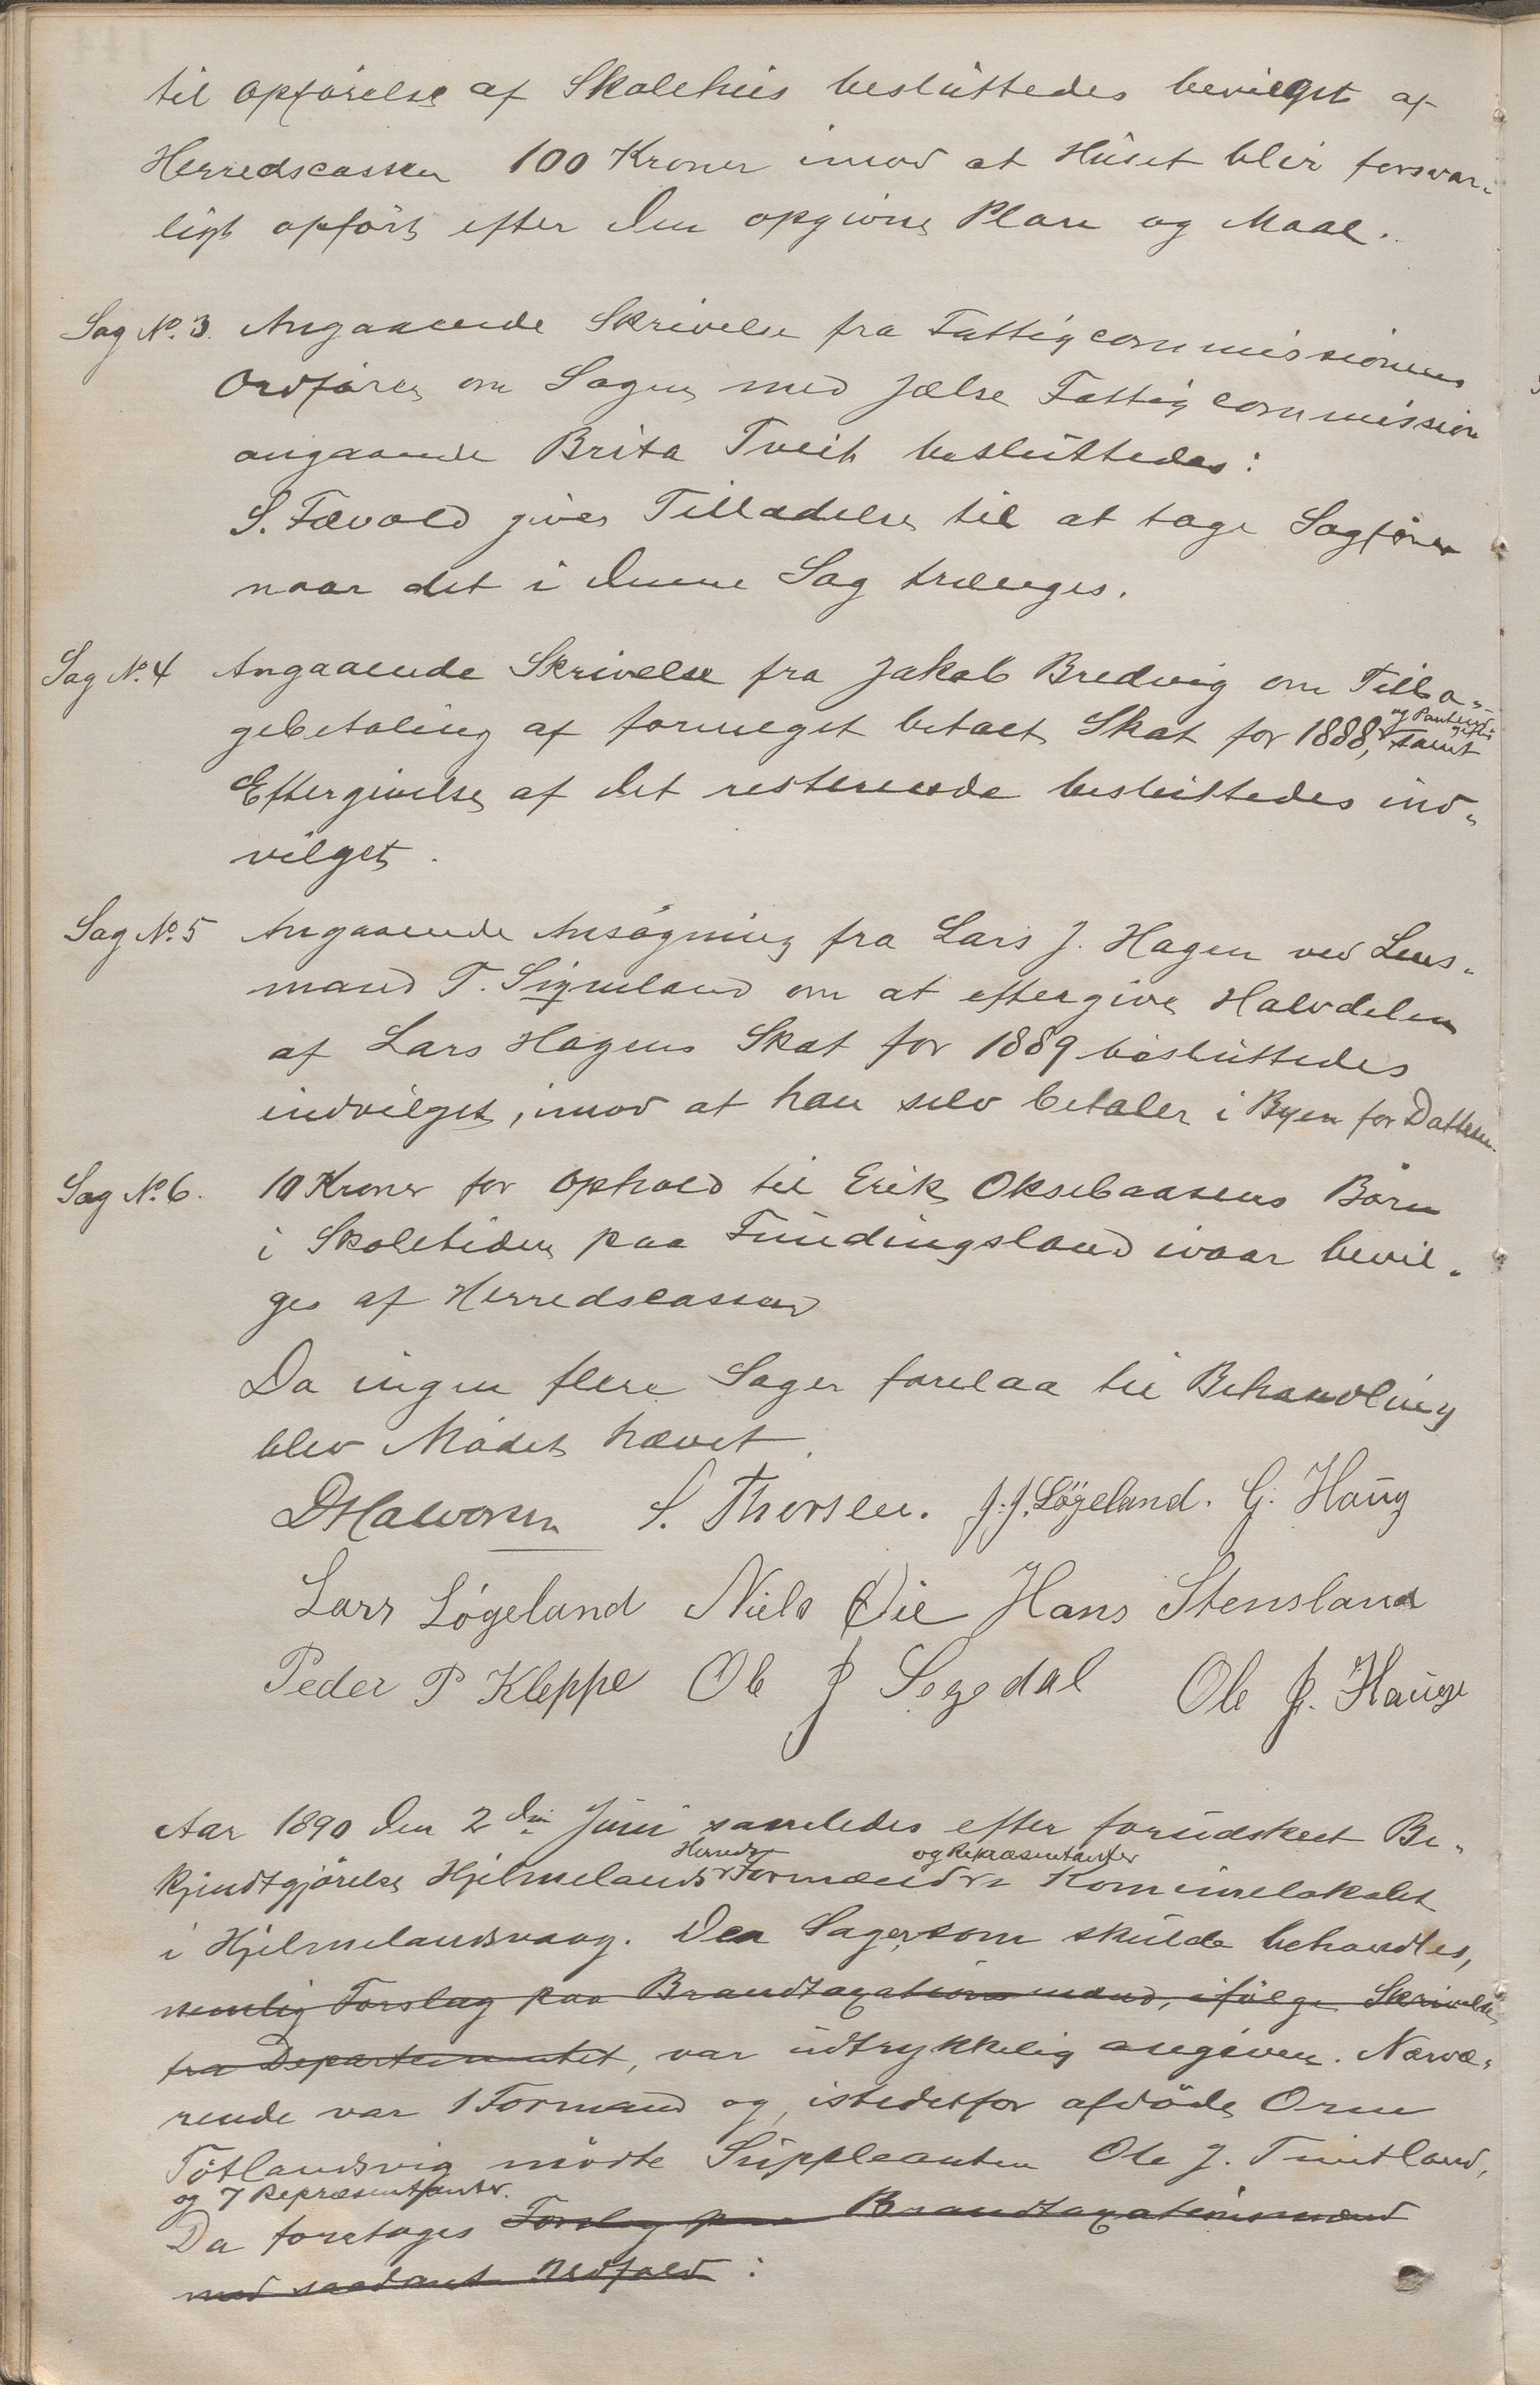 til Opförelse af Skolehus besluttedes bevilget af
Herredscassen 100 Kroner imod at Huset blir forsvar-
ligt opfört efter den opgivne Plan og Maal.
Sag No. 3. Angaaende Skrivelse fra Fattigcommissionens
Ordförer om Sagen med Jelse Fattigcommission
angaaende Brita Tveit besluttedes:
S. Fævold gives Tilladelse til at tage Sagförer
naar det i denne Sag trænges.
Sag No. 4 Angaaende Skrivelse fra Jakob Bredvig om Tilba-
gebetaling af formeget betalt Skat for 1888, samt
Eftergivelse af det resterende besluttedes ind-
vilget.
Sag No. 5 Angaaende Ansögning fra Lars J. Hagen ved Lens-
mand T. Sigmeland om at eftergive Halvdelen
af Lars Hagens Skat for 1889 besluttedes
indvilget, imod at han selv betaler i Byen for Datteren.
Sag No. 6. 10 Kroner for Ophold til Erik Oksebaasens Börn
i Skoletiden paa Fundingsland ivaar bevil-
ges af Herredscassen
Da ingen flere Sager forelaa til Behandling
blev Mödet hævet.
S. Thorsen. J. J. Lögeland. G. Haug
Lars Lögeland Niels Øie Hans Stensland
Peder P Kleppe Ole J Segedal Ole J. Hauge
Aar 1890 den 2den Juni samledes efter forudskeet Be-
Herreds og Repræsentanter
kjendtgjörelse Hjelmelands Formænd i Kommunelokalet
i Hjelmelandsvaag. Den Sager, som skulde behandles,
nemlig Forslag paa Brandtaxationsmænd, ifölge Skrivelse
fra Departementet, var udtrykkelig angiven. Nærvæ-
rende var 1 Formand og, istedetfor afdöde Orm
Tötlandsvig mödte Suppleanten Ole J. Tuntland,
og 7 Repræsentanter.
Da foretoges Forslag paa Brandtaxationsmænd
med saadant Udfald: